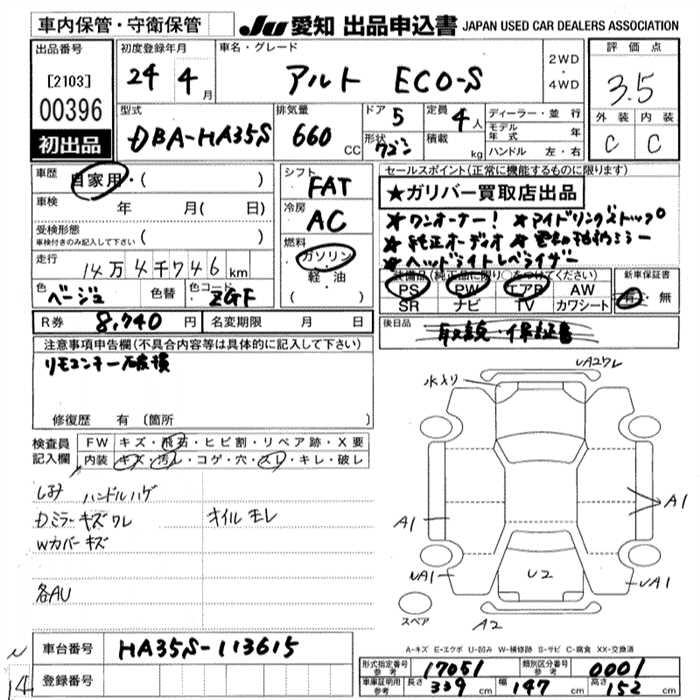 車内保管・守衛保管
JU 愛知 出品申込書 JAPAN USED CAR DEALERS ASSOCIATION
出品番号
[2103]
00396
初出品
初度登録年月
24 4月
車名・グレード
アルト ECO-S
2WD
・
4WD
評価点
3.5
外装 内装
C C
型式
DBA-HA35S
排気量
660 CC
ドア 5
形状 ワゴン
定員 4人
積載 kg
ディーラー・並行
モデル年式 年
ハンドル 左・右
車歴 自家用・( )
車検 年 月( 日)
受検形態
車検付きのみ記入して下さい ( )
走行 14万4千746km
色 ベージュ 色替 色コード ZGF
シフト FAT
冷房 AC
燃料
ガソリン
軽・油
( )
セールスポイント(正常に機能するものに限ります)
★ガリバー買取店出品
★ワンオーナー! ★アイドリングストップ
★純正オーディオ
★ヘッドライトレベライザー
装備品(純正品に限り)○をつけてください
PS PW エアB AW
SR ナビ TV カワシート
新車保証書
有・無
R券 8,740円 名変期限 月 日
後日品
取説・保証書
注意事項申告欄(不具合内容等は具体的に記入して下さい)
リモコンキー破損
修復歴 有 (箇所
検査員記入欄
FW キズ・飛石・ヒビ割・リペア跡・X要
内装 キズ・汚レ・コゲ・穴・スレ・キレ・破レ
しみ ハンドルハゲ
Dミラーキズワレ オイルモレ
Wカバーキズ
各AU
水入り
UA2ワレ
A1
A1
UA1
U2
UA1
A2
スペア
A-キズ E-エクボ U-凹み W-補修跡 S-サビ C-腐食 XX-交換済
車台番号 HA35S-113615
登録番号
14
型式指定番号
参考
17051
類別区分番号
参考
0001
車庫証明用
参考
長さ 339cm 幅 147cm 高さ 152cm